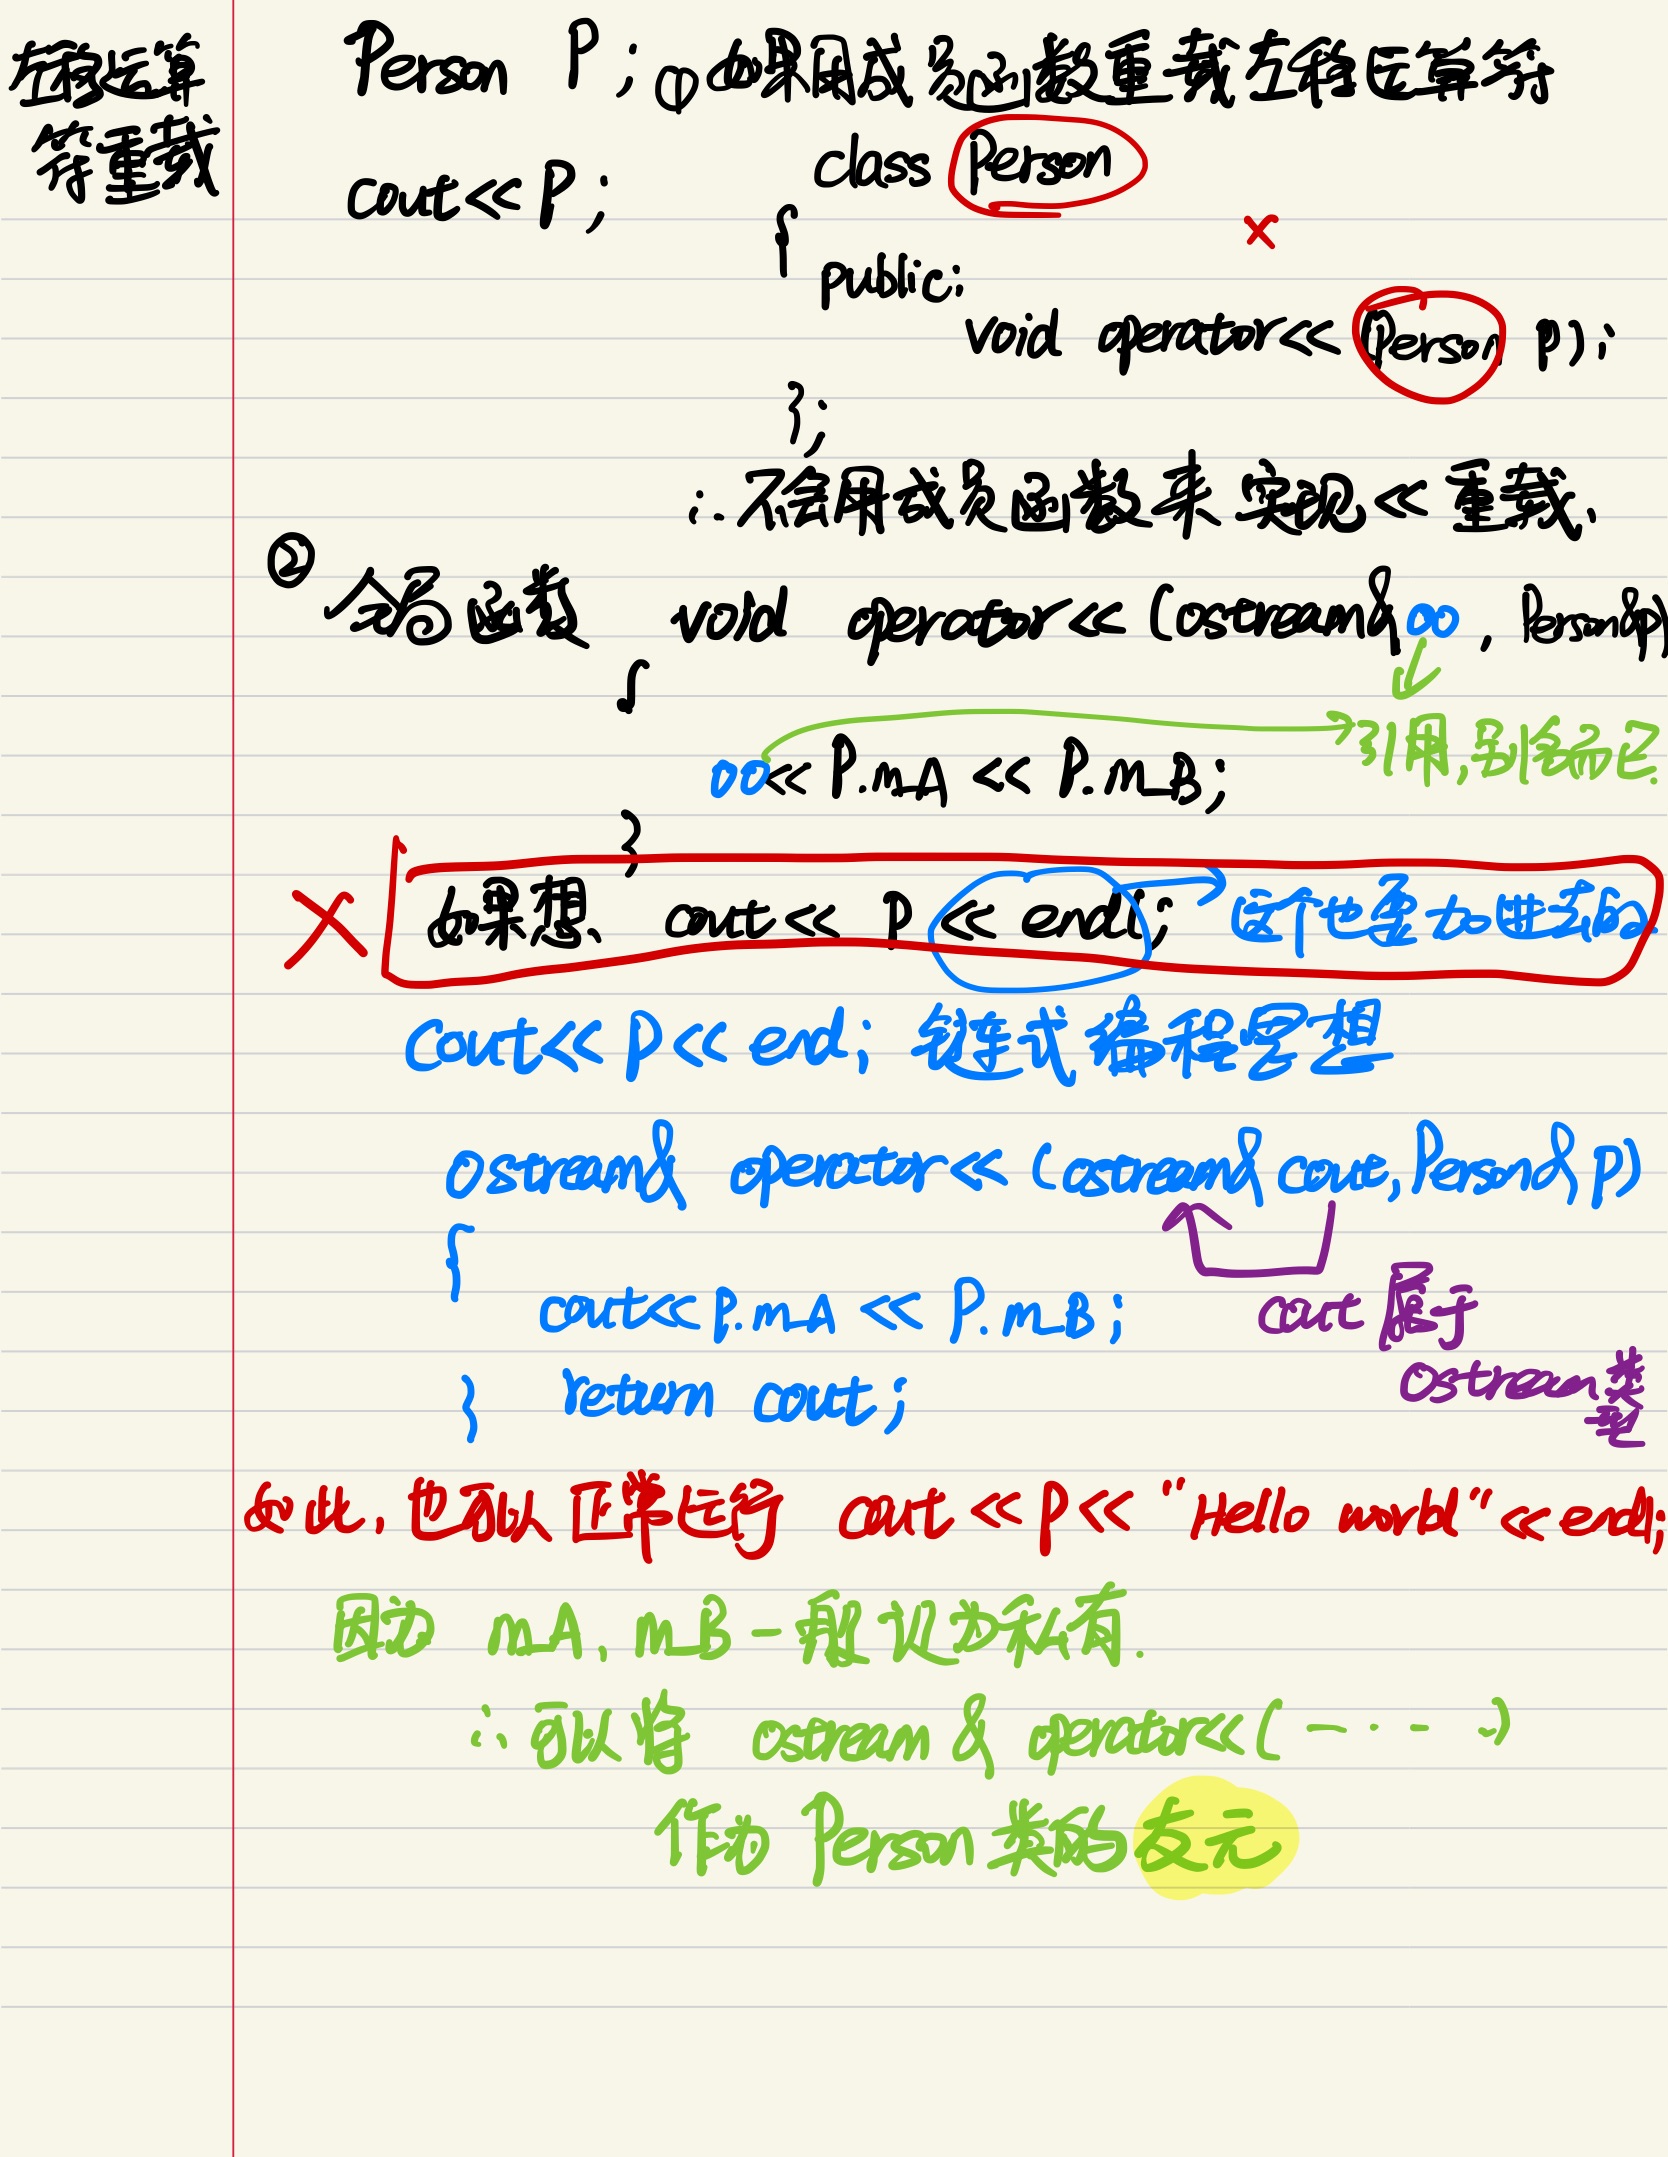 左移运算
符重载
Person P; ① 如果用成员函数重载左移运算符
cout<<P;
class Person
{
×
public:
void operator<< (Person p);
};
∴ 不会用成员函数来实现<<重载.
②
全局函数 void operator<< (ostream& oo, Person& p)
{
引用,别名而已.
oo<< P.m_A << P.m_B;
}
× 如果想 cout<< P << endl; 这个也要加进去的
Cout<< P<< end; 链式编程思想
Ostream& operator<< (ostream& cout, Person& p)
{
cout<<P.m_A << P.m_B;
cout 属于
Ostream类型
} return cout;
如此, 也可以正常运行 cout <<P<< "Hello world"<<endl;
因为 m_A, m_B 一般设为私有.
∴ 可以将 ostream & operator<<( - · - · )
作为 Person 类的友元